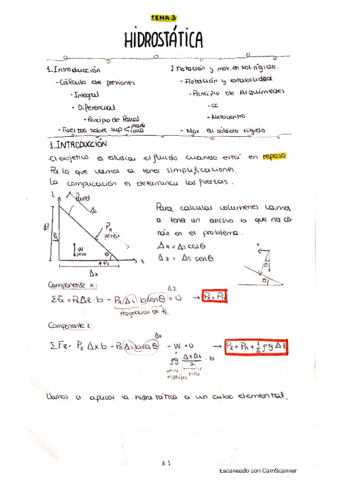 TEMA 3
HIDROSTÁTICA
1. Introducción
- Cálculo de presiones
• Integral
• Diferencial
- Principio de Pascal
- Fuerzas sobre sup plana curva
2. Flotación y mov. en sól. rígido
- Flotación y estabilidad
- Principio de Arquímedes
- CC
- Metacentro
- Mov. en sólido rígido
1. INTRODUCCIÓN
El objetivo a estudiar el fluido cuando está en reposo
Pa lo que vamos a tener simplificaciones.
La complicación es determinar las fuerzas.
Para calcular volúmenes vamos
a tener un ancho b que no da-
rán en el problema.
Δx = Δs cosθ
Δz = Δs senθ
Componente x:
ΣFx = PxΔz · b - PnΔs · b senθ = 0 → Px = Pn
Componente z:
ΣFz = Pz Δx b - PnΔs b cosθ - W = 0 → Pz = Pn + 1/2 ρg Δz
ρg ΔxΔz/2 · b
Vamos a aplicar la hidrostática a un cubo elemental.
3.1
Escaneado con CamScanner